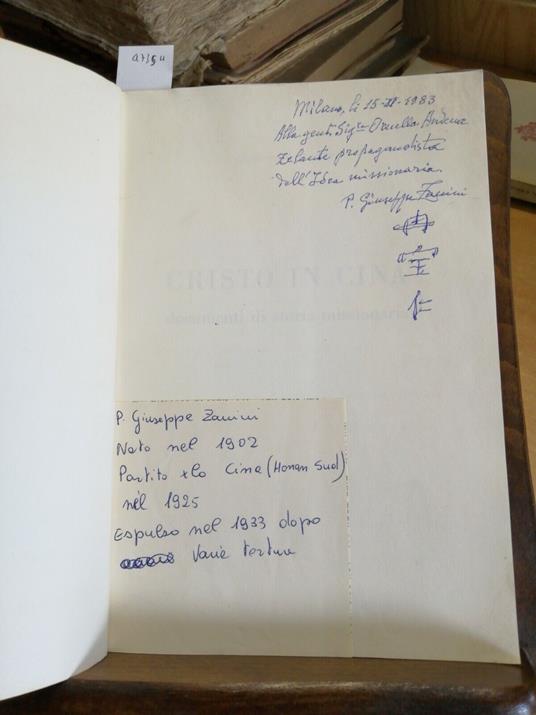 Q735U
Milano, li 15-II-1983
Alla gent. Sig.na Ornella
zelante propagandista
dell'Idea missionaria.
P. Giuseppe Zanini
CRISTO IN CINA
documenti di storia missionaria
P. Giuseppe Zanini
Nato nel 1902
Partito x la Cina (Honan Sud)
nel 1925
Espulso nel 1933 dopo
varie torture